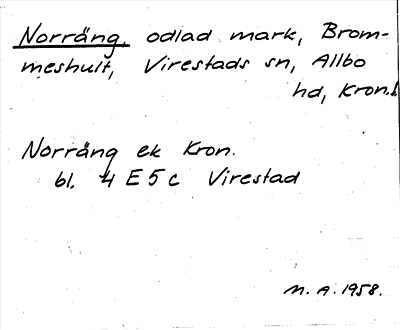 Norräng, odlad mark, Brom-
meshult, Virestads sn, Allbo
hd, Kron.l
Norräng ek Kron.
bl. 4 E 5 c Virestad
M. A. 1958.